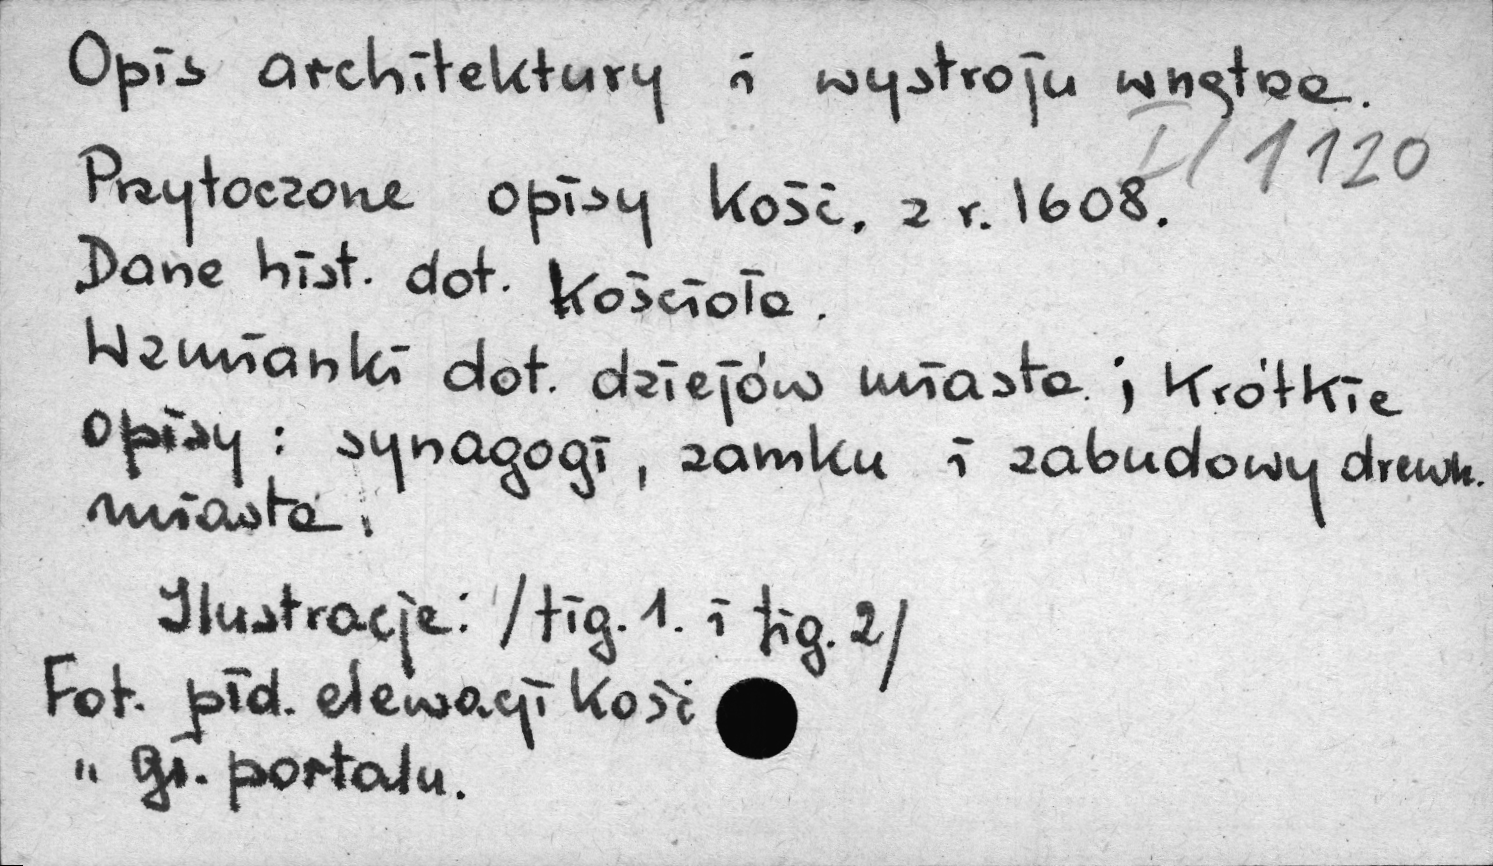 Opis architektury i wystroju wnętrza.
I/1120
Przytoczone opisy kość. z r. 1608.
Dane hist. dot. kościoła.
Wzmianki dot. dziejów miasta; krótkie
opisy: synagogi, zamku i zabudowy drewn.
miasta.
Ilustracje: /fig. 1. i fig. 2/
Fot. płd. elewacji kość
" gł. portalu.